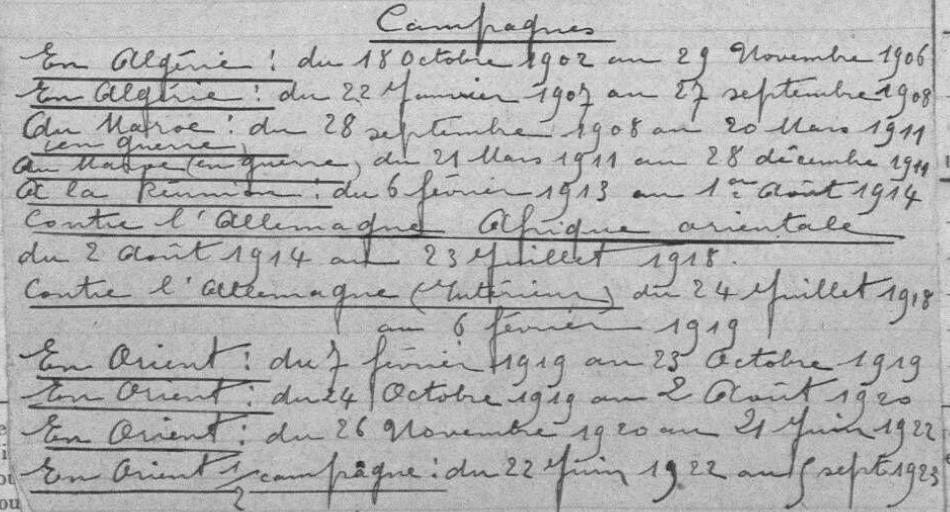 Campagnes
En Algérie : du 18 Octobre 1902 au 29 Novembre 1906
En Algérie : du 22 Janvier 1907 au 27 septembre 1908
Au Maroc : du 28 septembre 1908 au 20 Mars 1911
(en guerre)
Au Maroc (en guerre) du 21 Mars 1911 au 28 décembre 1911
A la Réunion : du 6 février 1913 au 1er Août 1914
Contre l'Allemagne Afrique orientale
du 2 Août 1914 au 23 Juillet 1918.
Contre l'Allemagne (Intérieur) du 24 Juillet 1918
au 6 février 1919
En Orient : du 7 février 1919 au 23 Octobre 1919
En Orient : du 24 Octobre 1919 au 2 Août 1920
En Orient : du 26 Novembre 1920 au 21 Juin 1922
En Orient 1/2 campagne : du 22 Juin 1922 au 5 sept 1923